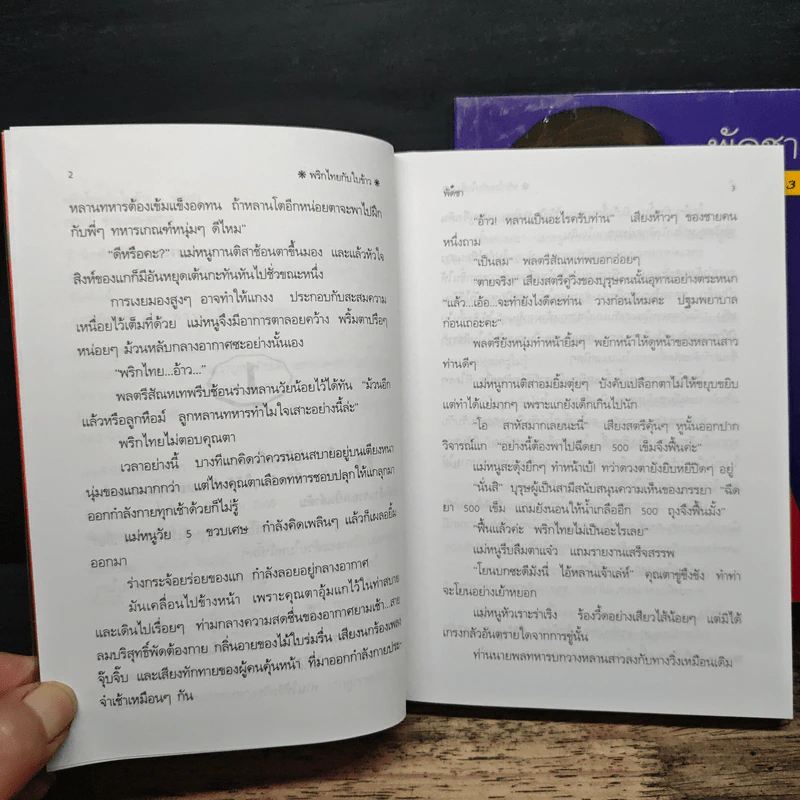 2
❋ พริกไทยกับใบข้าว ❋
หลานทหารต้องเข้มแข็งอดทน ถ้าหลานโตอีกหน่อยตาจะพาไปฝึก
กับพี่ๆ ทหารเกณฑ์หนุ่มๆ ดีไหม"
"ดีหรือคะ?" แม่หนูกานติสาช้อนตาขึ้นมอง และแล้วหัวใจ
สิงห์ของแกก็มีอันหยุดเต้นกะทันหันไปชั่วขณะหนึ่ง
การเงยมองสูงๆ อาจทำให้แกงง ประกอบกับสะสมความ
เหนื่อยไว้เต็มที่ด้วย แม่หนูจึงมีอาการตาลอยคว้าง พริ้มตาปรือๆ
หน่อยๆ ม้วนหลับกลางอากาศซะอย่างนั้นเอง
"พริกไทย...อ้าว..."
พลตรีสัณหเทพรีบช้อนร่างหลานวัยน้อยไว้ได้ทัน "ม้วนอีก
แล้วหรือลูกหือม์ ลูกหลานทหารทำไมใจเสาะอย่างนี้ล่ะ"
พริกไทยไม่ตอบคุณตา
เวลาอย่างนี้ บางทีแกคิดว่าควรนอนสบายอยู่บนเตียงหนา
นุ่มของแกมากกว่า แต่ไหงคุณตาเลือดทหารชอบปลุกให้แกลุกมา
ออกกำลังกายทุกเช้าด้วยก็ไม่รู้
แม่หนูวัย 5 ขวบเศษ กำลังคิดเพลินๆ แล้วก็เผลอยิ้ม
ออกมา
ร่างกระจ้อยร่อยของแก กำลังลอยอยู่กลางอากาศ
มันเคลื่อนไปข้างหน้า เพราะคุณตาอุ้มแกไว้ในท่าสบาย
และเดินไปเรื่อยๆ ท่ามกลางความสดชื่นของอากาศยามเช้า...สาย
ลมบริสุทธิ์พัดต้องกาย กลิ่นอายของไม้ใบร่มรื่น เสียงนกร้องเพลง
จุ๊บจิ๊บ และเสียงทักทายของผู้คนคุ้นหน้า ที่มาออกกำลังกายประ-
จำเช้าเหมือนๆ กัน
พัดชา
3
"อ้าว! หลานเป็นอะไรครับท่าน" เสียงห้าวๆ ของชายคน
หนึ่งถาม
"เป็นลม" พลตรีสัณหเทพบอกอ่อยๆ
"ตายจริง!" เสียงสตรีคู่วิ่งของบุรุษคนนั้นอุทานอย่างตระหนก
"แล้ว...เอ้อ...จะทำยังไงดีคะท่าน วางก่อนไหมคะ ปฐมพยาบาล
ก่อนเถอะคะ"
พลตรียังหนุ่มทำหน้ายิ้มๆ พยักหน้าให้ดูหน้าของหลานสาว
ท่านดีๆ
แม่หนูกานติสาอมยิ้มตุ่ยๆ บังคับเปลือกตาไม่ให้ขยุบขยิบ
แต่ทำได้แย่มากๆ เพราะแกยังเด็กเกินไปนัก
"โอ สาหัสมากเลยนะนี่" เสียงสตรีคุ้นๆ หูนั้นออกปาก
วิจารณ์แก "อย่างนี้ต้องพาไปฉีดยา 500 เข็มจึงฟื้นค่ะ"
แม่หนูสะดุ้งยึกๆ ทำหน้าเบ้! ทว่าดวงตายังยิบหยีปิดๆ อยู่
"นั่นสิ" บุรุษผู้เป็นสามีสนับสนุนความเห็นของภรรยา "ฉีด
ยา 500 เข็ม แถมยังนอนให้น้ำเกลืออีก 500 ถุงจึงฟื้นมั้ง"
"ฟื้นแล้วค่ะ พริกไทยไม่เป็นอะไรเลย"
แม่หนูรีบลืมตาแจ๋ว แถมรายงานเสร็จสรรพ
"โยนบกซะดีมังนี่ ไอ้หลานเจ้าเล่ห์" คุณตาขู่ขึงขัง ทำท่า
จะโยนอย่างเย้าหยอก
แม่หนูหัวเราะร่าเริง ร้องวี้ดอย่างเสียวไส้น้อยๆ แต่มิได้
เกรงกลัวอันตรายใดจากการขู่นั้น
ท่านนายพลทหารบกวางหลานสาวลงกับทางวิ่งเหมือนเดิม
พัดชา
3